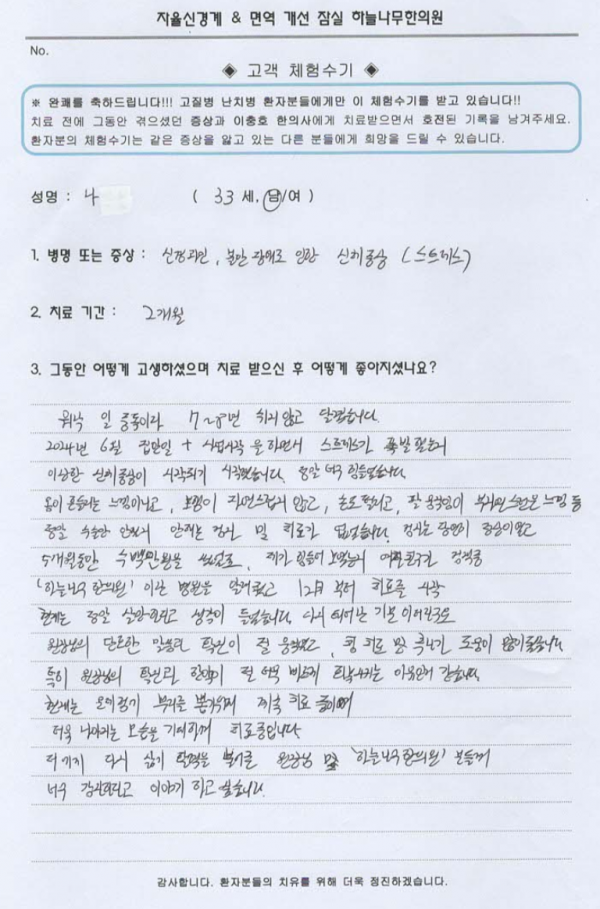 자율신경계 & 면역 개선 잠실 하늘나무한의원
No.
◈ 고객 체험수기 ◈
※ 완쾌를 축하드립니다!!! 고질병 난치병 환자분들에게만 이 체험수기를 받고 있습니다!!
치료 전에 그동안 겪으셨던 증상과 이충호 한의사에게 치료받으면서 호전된 기록을 남겨주세요.
환자분의 체험수기는 같은 증상을 앓고 있는 다른 분들에게 희망을 드릴 수 있습니다.
성명 : 나 ( 33 세, 남/여 )
1. 병명 또는 증상 : 신경과민, 불안장애로 인한 신체증상 (스트레스)
2. 치료 기간 : 2개월
3. 그동안 어떻게 고생하셨으며 치료 받으신 후 어떻게 좋아지셨나요?
워낙 일 중독이라 7~8년 쉬지않고 달렸습니다.
2024년 6월 집안일 + 사업시작을 하면서 스트레스가
이상한 신체증상이 시작되기 시작했습니다. 정말 너무 힘들었습니다.
몸이 흔들리는 느낌이나고, 보행이 자연스럽지 않고, 손도 떨리고, 팔 움직임이 부자연스러운 느낌 등
정말 수많은 안해본 검사 및 치료가 없었습니다. 검사는 당연히 정상이었고
5개월동안 수백만원을 쓰면서, 제가
'하늘나무한의원' 이란 병원을 알게됐고 12월부터 치료를 시작
현재는 정말 살만하다고 생각이 들었습니다. 다시 태어난 기분이
원장님의 단호한 말씀과 확신이 절 움직였고, 침 치료 및 도움이 많이됐습니다
특히 원장님의 확신과 절 더욱 빠르게 같습니다.
현재는 뿌리를 뽑기위해 계속 치료 중이며
더욱 나아지는 모습을 기대하며 치료중입니다.
다시 살기 원장님 및 '하늘나무한의원' 분들께
너무 감사하다고 이야기 하고 싶습니다.
감사합니다. 환자분들의 치유를 위해 더욱 정진하겠습니다.